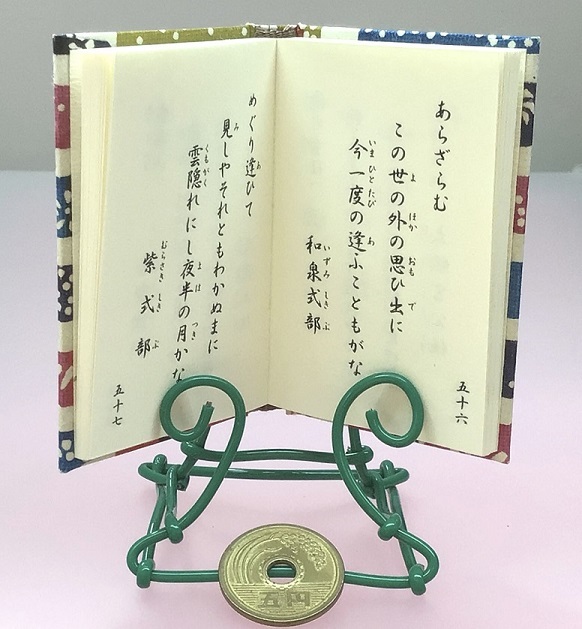 あらざらむ
この世の外の思ひ出に
今一度の逢ふこともがな
和泉式部
五十六
めぐり逢ひて
見しやそれともわかぬまに
雲隠れにし夜半の月かな
紫式部
五十七
五円